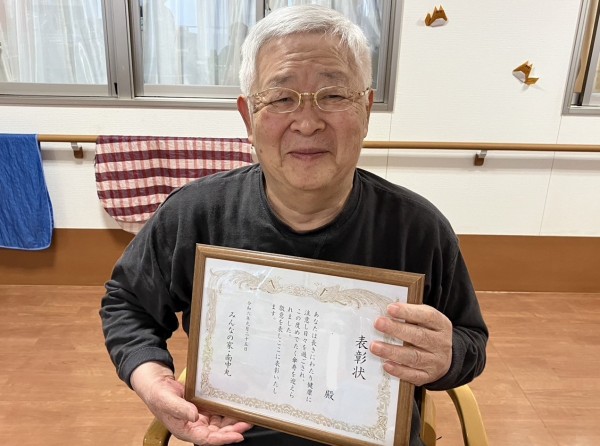 表彰状
殿
あなたは長きにわたり健康に
注意し日々を過ごされ、
この度めでたく傘寿を迎えら
れました。
敬意を表しここに表彰いたし
ます。
みんなの家・南中丸